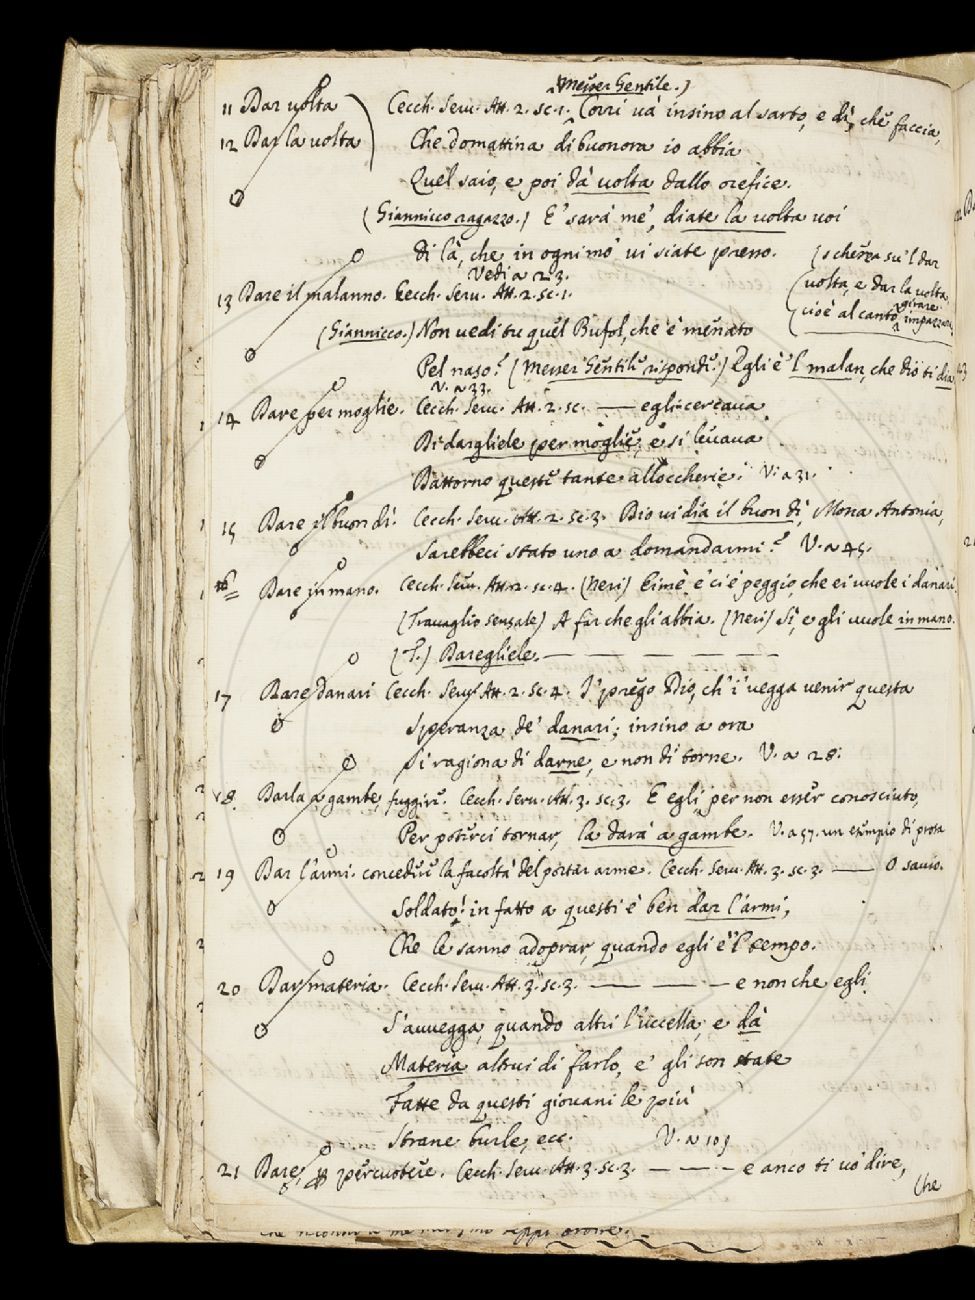 (Messer Gentile.)
11 Dar volta Cecch. Serv. Att. 2. sc. 1. Corri va' insino al sarto, e dì, che faccia,
12 Dar la volta Che domattina di buonora io abbia
Quel saio, e poi dà volta dallo orefice.
(Giannicco ragazzo.) E' sarà me', diate la volta voi
di là, che in ogni mo' vi siate presso. (scherza su 'l dar
volta, e dar la volta,
cioè al canto girare impazzare
Vedi a 23.
13 Dare il malanno. Cecch. Serv. Att. 2. sc. 1.
(Giannicco.) Non vedi tu quel Bufol, che è menato
Pel naso? (Messer Gentile rispondi.) Egli è 'l malan, che dio ti dia
V. a 33.
14 Dare per moglie. Cecch. Serv. Att. 2. sc. — egli cercava
Di dargliele per moglie, e si levava
Dattorno queste tante alloccherie. V. a 31.
15 Dare il buon dì. Cecch. Serv. Att. 2. sc. 3. Dio vi dia il buon dì, Mona Antonia,
Sarebbeci stato uno a domandarmi? V. a 45.
16 Dare in mano. Cecch. Serv. Att. 2. sc. 4. (Neri) Eimè, e' ci è peggio, che ei vuole i danari
(Travaglio sensale) A far che gli abbia. (Neri) Sì, e gli vuole in mano.
(T.) Daregliele. — — — — —
17 Dare danari Cecch. Serv. Att. 2. sc. 4. I' prego Dio, ch' i' vegga venir questa
Speranza de' danari; insino a ora
Si ragiona di darne, e non di torne. V. a 28.
18. Darla a gambe, fuggire. Cecch. Serv. Att. 3. sc. 3. E egli, per non esser conosciuto,
Per poterci tornar, la darà a gambe. V. a 57. un esempio di prosa
19 Dar l'armi. concedere la facoltà del portar arme. Cecch. Serv. Att. 3. sc. 3. — O savio.
Soldato! in fatto a questi è ben dar l'armi,
Che le sanno adoprar, quando egli è 'l tempo.
20 Dar materia. Cecch. Serv. Att. 3. sc. 3. — — — e non che egli
S'avvegga, quando altri l'uccella, e dà
Materia altrui di farlo, e' gli son state
Fatte da questi giovani le più
Strane burle, ecc. V. a 109
21 Dare, percuotere. Cecch. Serv. Att. 3. sc. 3. — — — e anco ti vo' dire,
Che